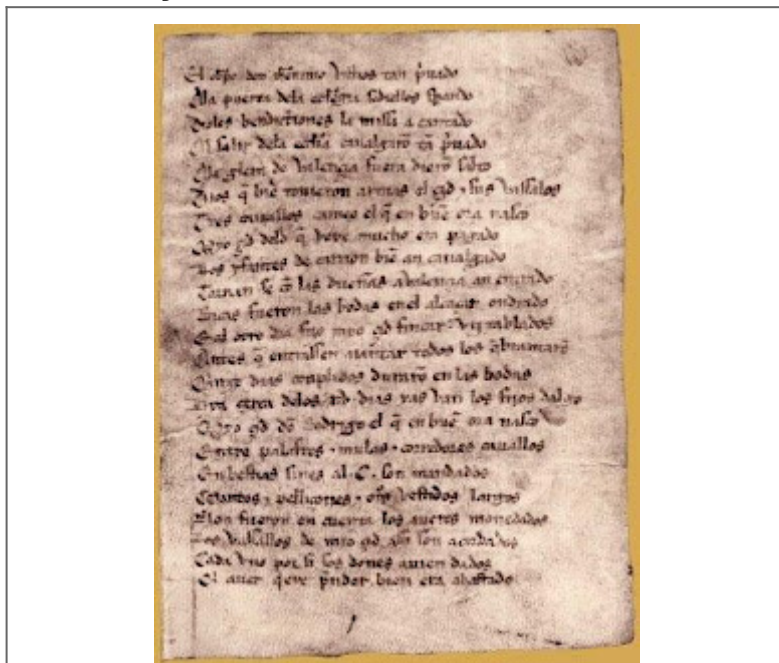 El obpo don Iheronimo vistios tan pͥuado
Ala puerta dela eclegia sediellos sꝑando
Dioles bendictiones la missa a cantado
Al salir dela eclegia caualgarō tā pͥuado
Ala glera de Valençia fuera dierō salto
Dios q̄ biē touieron armas el çid e sus vassalos
Tres cauallos cameo el q̄ en buē ora nasco
Myo çid delo q̄ veye mucho era pagado
Los yfantes de carrion biē an caualgado
Tornan se cō las dueñas a valençia an entrado
Ricas fueron las bodas en el alcaçar ondrado
E al otro dia fizo myo çid fincar vij tablados
Antes q̄ entrassen a iantar todos los q̄brantarō
Quinze dias conplidos durarō en las bodas
Hya çerca delos xv dias yas van los fijos dalgo
Myo çid dō Rodrigo el q̄ en buē ora nasco
Entre palafres e mulas e corredores cauallos
En bestias sines al .C. son mandados
Mantos e pelliçones e otͦs vestidos largos
Non fueron en cuenta los aueres monedados
Los vassallos de myo çid assi son acordados
Cada vno por si sos dones auien dados
auer prender bien era abastado